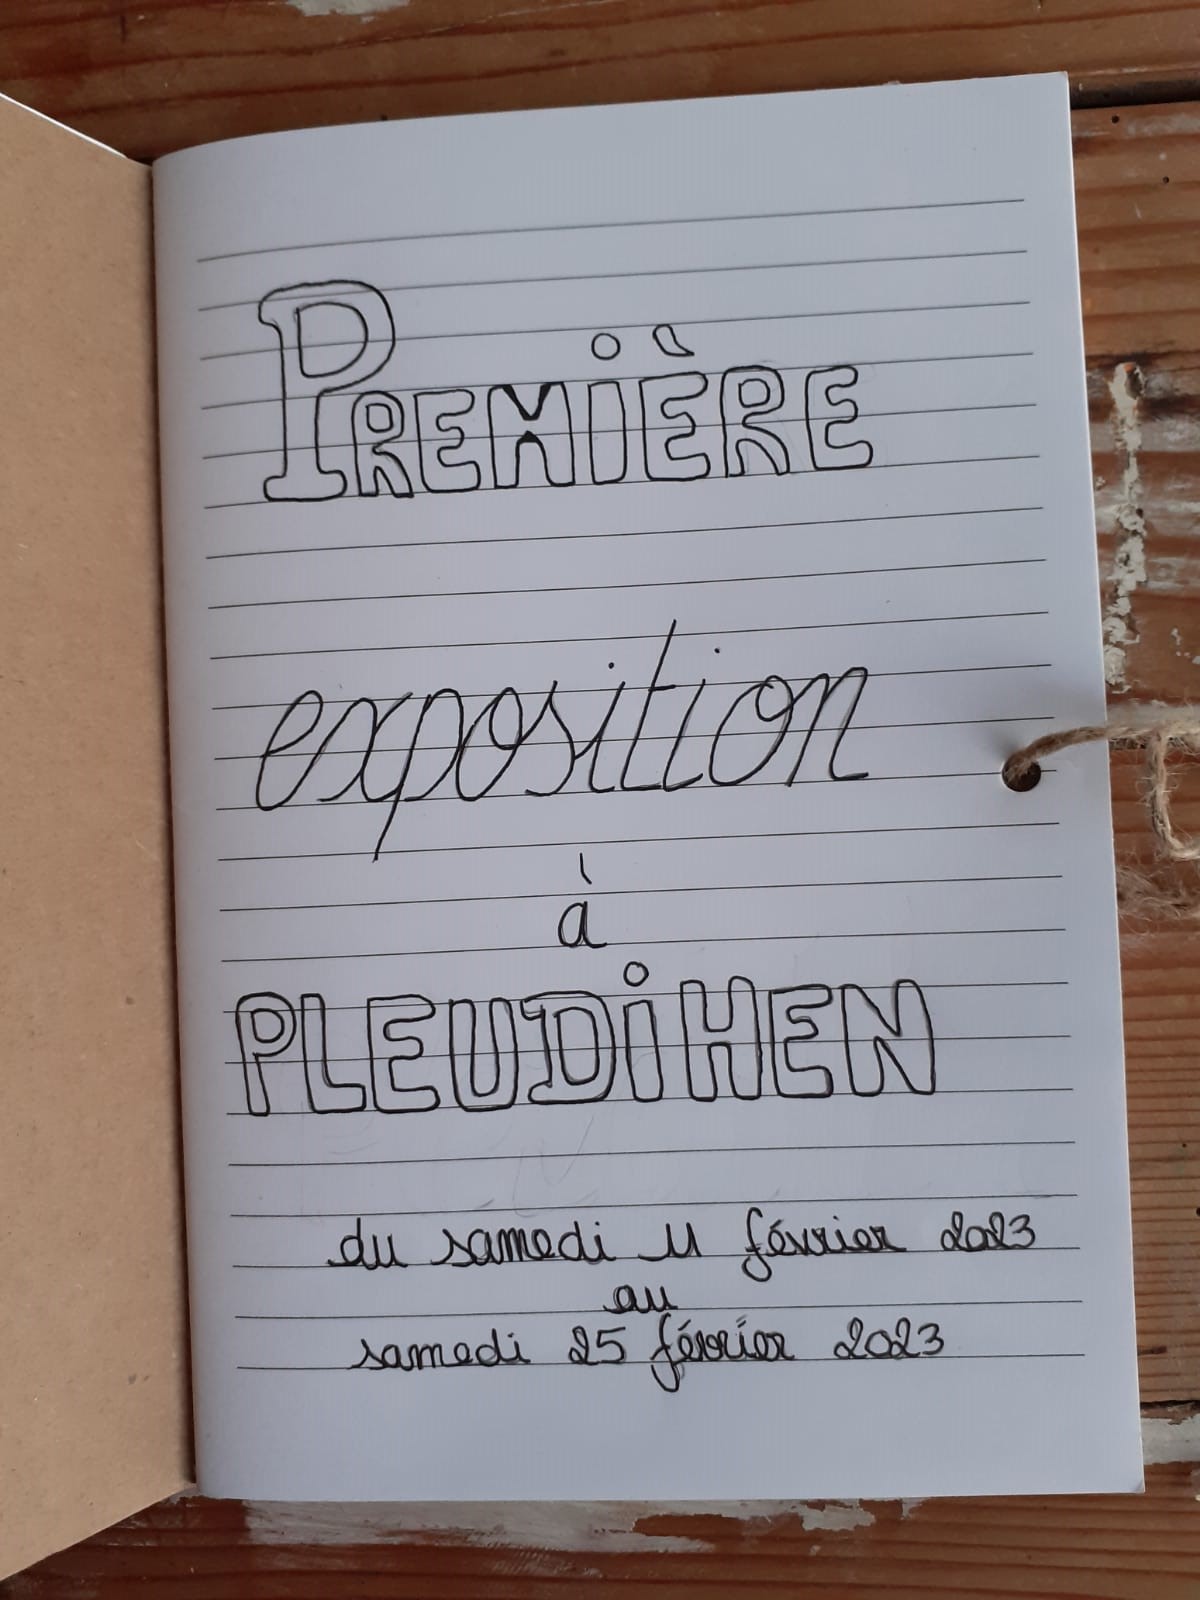 PREMiÈRE
exposition
à
PLEUDiHEN
du samedi 11 février 2023
au
samedi 25 février 2023